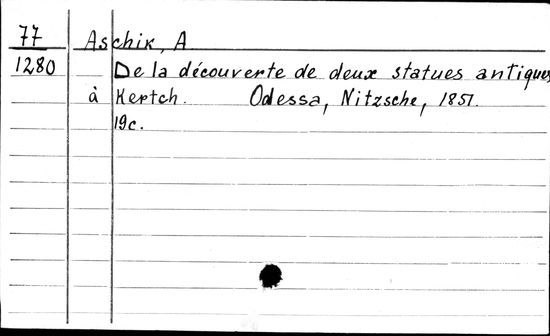 77 Aschik, A
1280 De la découverte de deux statues antiques
à Kertch. Odessa, Nitzsche, 1851.
19c.